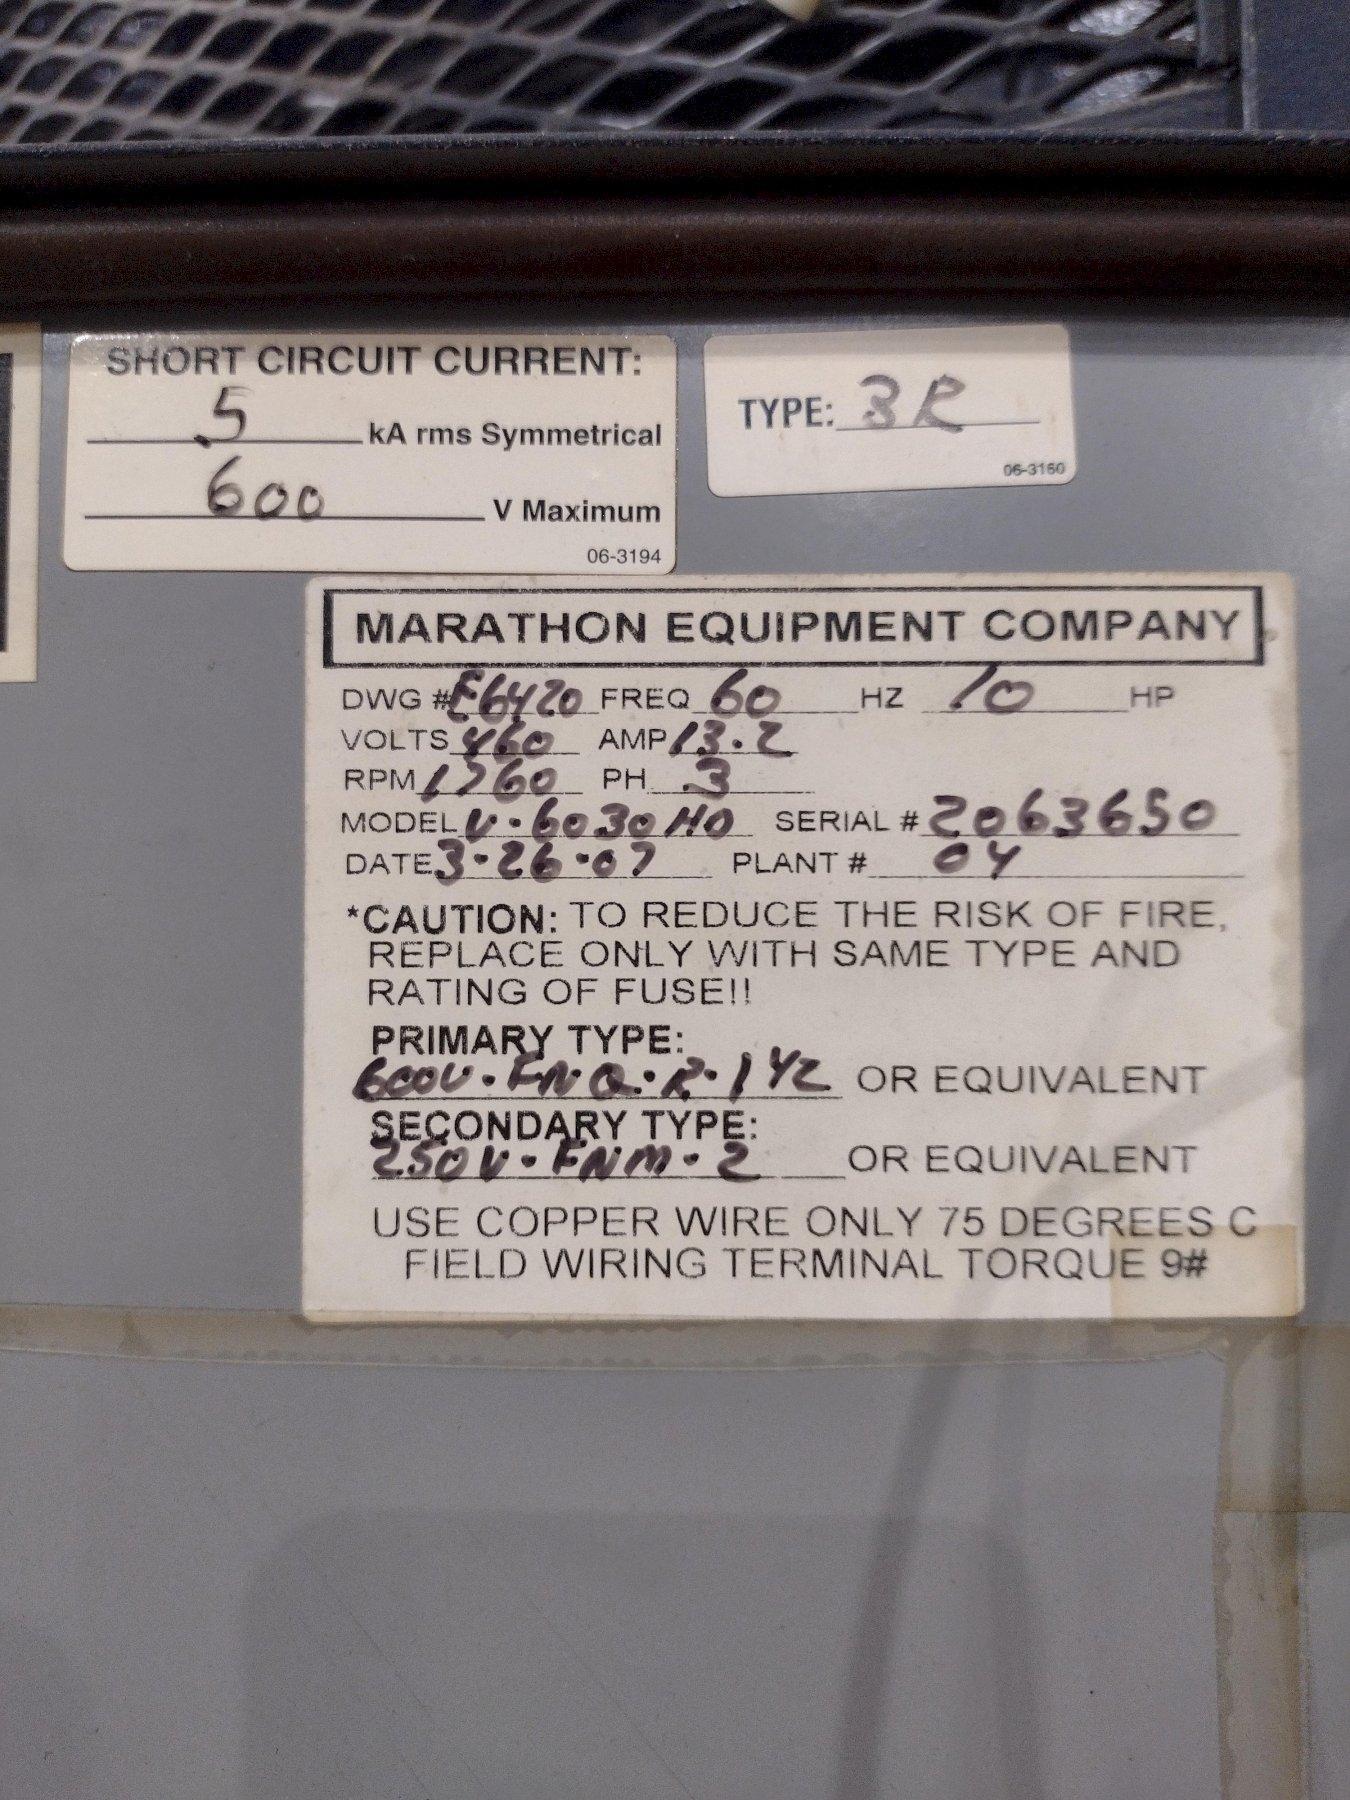 SHORT CIRCUIT CURRENT:
.5 kA rms Symmetrical
600 V Maximum
06-3194
TYPE: 3R
06-3160
MARATHON EQUIPMENT COMPANY
DWG # E6420 FREQ 60 HZ 10 HP
VOLTS 460 AMP 13.2
RPM 1760 PH 3
MODEL V-6030 HD SERIAL # 2063650
DATE 3-26-07 PLANT # 04
*CAUTION: TO REDUCE THE RISK OF FIRE,
REPLACE ONLY WITH SAME TYPE AND
RATING OF FUSE!!
PRIMARY TYPE:
600V-FNQ-R-1 1/2 OR EQUIVALENT
SECONDARY TYPE:
250V-FNM-2 OR EQUIVALENT
USE COPPER WIRE ONLY 75 DEGREES C
FIELD WIRING TERMINAL TORQUE 9#